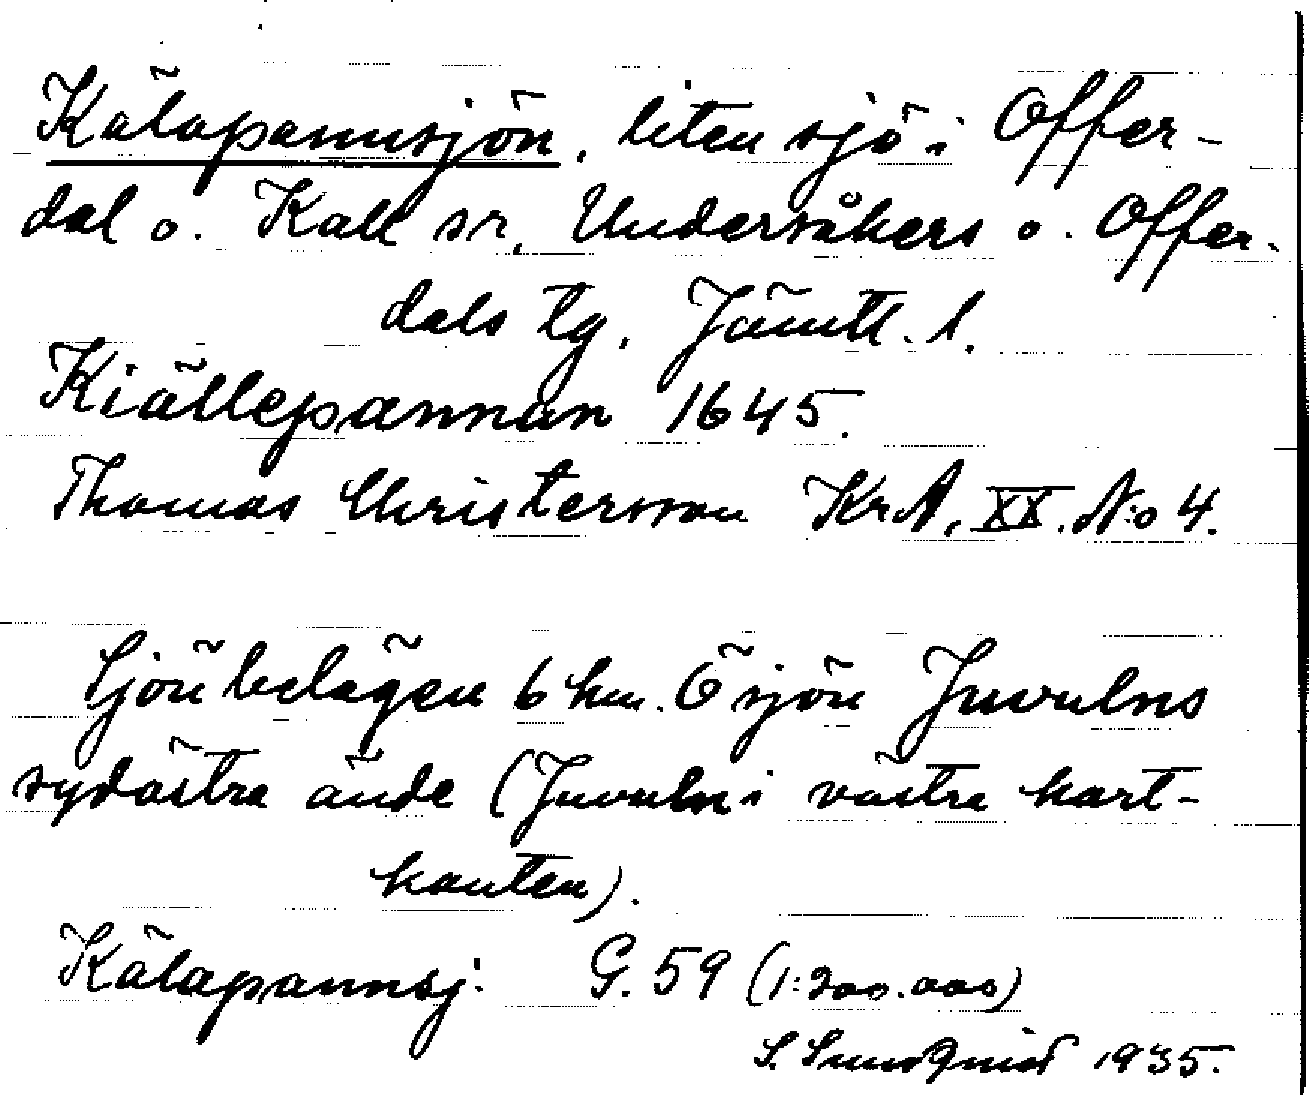 Kälapannsjön, liten sjö i Offer-
dal o. Kall sr, Undersåkers o. Offer-
dals tg, Jämtl. l.
Kiällepannan 1645.
Thomas Christersson KrA, XX. N:o 4.
Sjön belägen 6 km. Ö sjön Juvulns
sydöstra ände (Juvuln i västra kart-
kanten).
Kälapannsj: G. 59 (1:200.000)
S. Sundquist 1935.